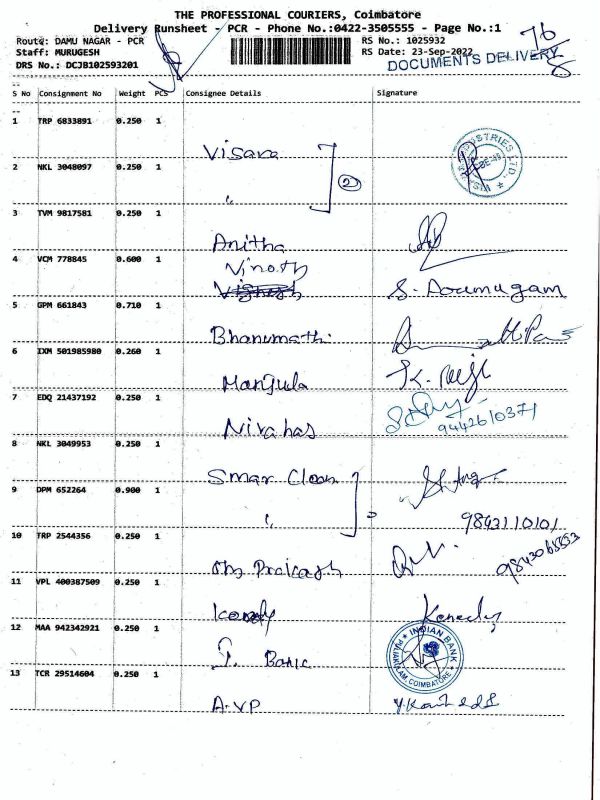 THE PROFESSIONAL COURIERS, Coimbatore
Delivery Runsheet - PCR - Phone No.:0422-3505555 - Page No.:1
76
8
Route: DAMU NAGAR - PCR
RS No.: 1025932
Staff: MURUGESH
RS Date: 23-Sep-2022
DRS No.: DCJB102593201
DOCUMENTS DELIVERY
S No Consignment No Weight PCS Consignee Details Signature
1 TRP 6833891 0.250 1
Visara
2 NKL 3048097 0.250 1
2
"
3 TVM 9817581 0.250 1
Anitha
4 VCM 778845 0.600 1
Vinoth
S. Aarumugam
5 GPM 661843 0.710 1
Bhanumathi
6 IXM 501985980 0.260 1
Manjula
7 EDQ 21437192 0.250 1
9442610371
Nirahas
8 NKL 3049953 0.250 1
Smar Clean
9 DPM 652264 0.900 1
"
9843110101
10 TRP 2544356 0.250 1
Om Prakash
9843068853
11 VPL 400387509 0.250 1
Kenedy Kenedy
12 MAA 942342921 0.250 1
I. Bank
INDIAN BANK
PULIAKULAM, COIMBATORE
13 TCR 29514604 0.250 1
A.VP